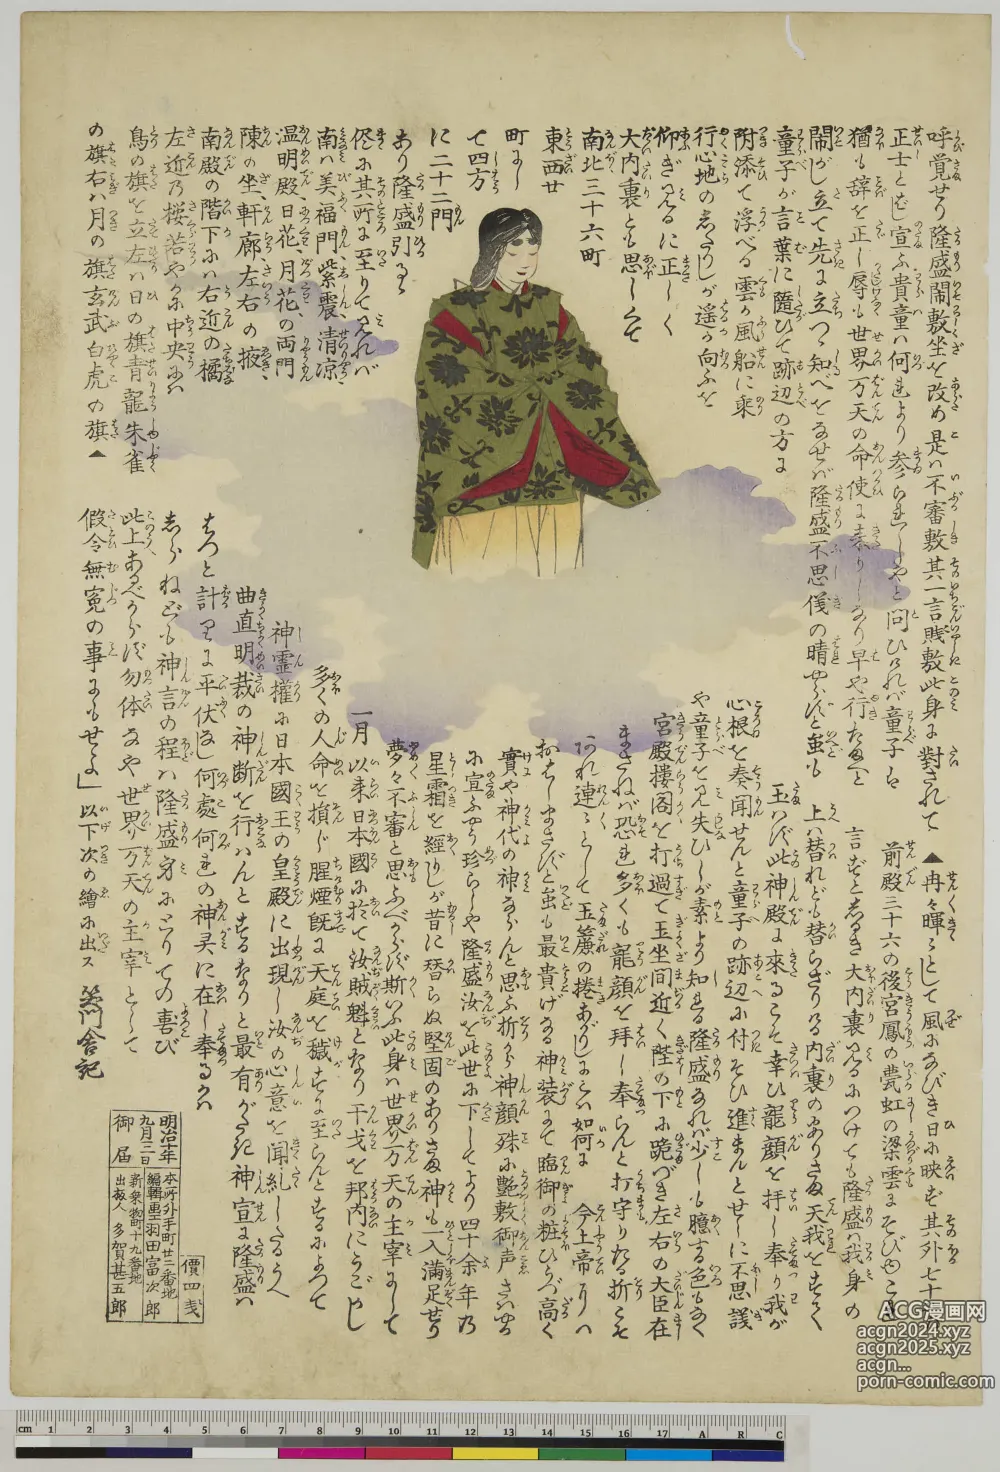 呼覚せり隆盛閙敷坐を改め是ハ不審敷其一言賎敷此身に對されて
正士とばし宣ふ貴童ハ何
猶も辞を正し辱も世界万天の命使
閙がし立て先に立つゝ知へをなせバ隆盛不思儀の晴やらずと虽も
童子が言葉に隨ひて跡辺の方に
附添て浮べる雲の風船に乗
行心地の
仰ぎ見るに正しく
大内裏とも思しくて
南北三十六町
東西廿
町にし
て四方
に二十二門
あり隆盛引るゝ
侭に其所に至りて見れバ
南ハ美福門、紫震、清凉
温明殿、日花、月花の両門
陳の坐、軒廊左右の掖
南殿の階下にハ右近の橘
左近乃桜若やかに中央にハ
鳥の旗を立左ハ日の旗青龍朱雀
の旗右ハ月の旗玄武白虎の旗▲
▲冉々暉々として風になびき日に映ず其外七十
前殿三十六の後宮鳳の甍虹の梁雲にそびゆ
言ずとしるき大内裏見るにつけても隆盛ハ我身の
上ハ替れども替らざりける内裏のありさま天我をすく
玉ハず此神殿に來るこそ幸ひ龍顔を拝し奉り我が
心根を奏聞せんと童子の跡辺に付そひ進まんとせしに不思議
や童子を見失ひしが素より知れる隆盛なれバ少しも臆する色もなく
宮殿搂阁を打過て玉坐間近く陛の下に跪づき左右の大臣在
まさねバ恐れ多くも龍顔を拝し奉らんと打守りたる折こそ
あれ連々として玉簾の捲あがりしにこハ如何に今上帝にハ
おはしまさずと虽も最貴げなる神装にて臨御の粧ひいと高く
實や神代の神ならんと思ふ折から神顔殊に艶敷御声さハやか
に宣ふやう珍らしや隆盛汝を此世に下してより四十余年乃
星霜を經りしが昔に替らぬ堅固のありさま神も一入満足せり
夢々不審と思ふべからず斯いふ此身ハ世界万天の主宰にして
一月以来日本國に於て汝賊魁となり干戈を邦内にうごかし
多くの人命を損じ腥煙既に天庭を穢すに至らんとするによつて
神霊權に日本國王の皇殿に出現し汝の心意を聞糺したるうへ
曲直明裁の神断を行ハんとするなりと最有がたき神宣に隆盛ハ
はつと計りに平伏なし何處何れの神灵に在し奉るかハ
しらねども神言の程ハ隆盛身にとりての喜び
此上あるべからず勿体なや世界万天の主宰として
假令無寃の事にもせよ」以下次の繪に出ス 笑門舎記
明治十年
九月三日
御届
本所外手町廿三番地
編輯畫工 羽田富次郎
新乗物町十九番地
出板人 多賀甚五郎
價四戋
ACG漫画网
acgn2024.xyz
acgn2025.xyz
acgn...
porn-comic.com
cm 1 2 3 4 5 6 7 8 9 10 11 12 13 14 15 16 17 A R C